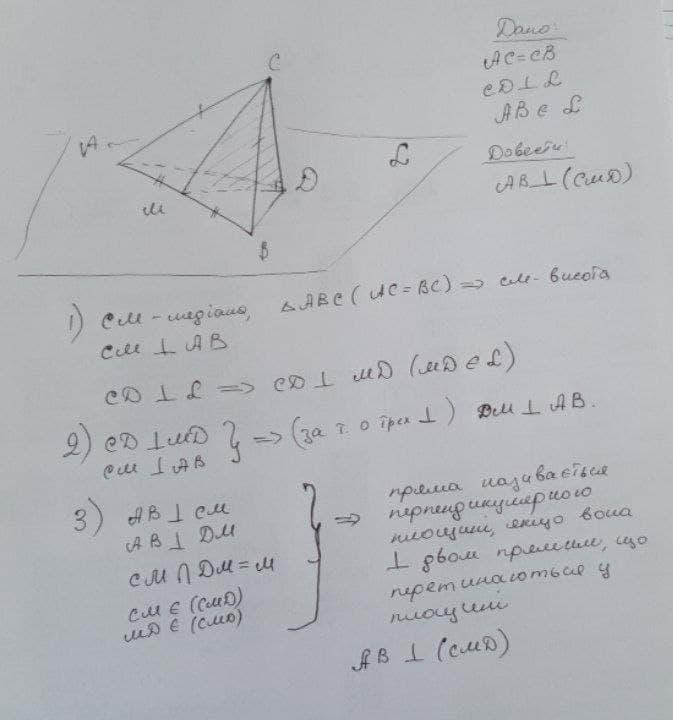 Дано:
AC=CB
CD⊥L
AB∈L
Довести:
AB⊥(CMD)
C
A
L
D
M
B
1) CM-медіана, △ABC(AC=BC)⇒CM-висота
CM⊥AB
CD⊥L⇒CD⊥MD(MD∈L)
2) CD⊥MD
CM⊥AB } ⇒(за т. о трех ⊥) DM⊥AB.
3) AB⊥CM
AB⊥DM
CM∩DM=M
CM∈(CMD)
MD∈(CMD)
} ⇒ пряма називається
перпендикулярного
площині, якщо вона
⊥ двом прямим, що
перетинаються у
площині
AB⊥(CMD)